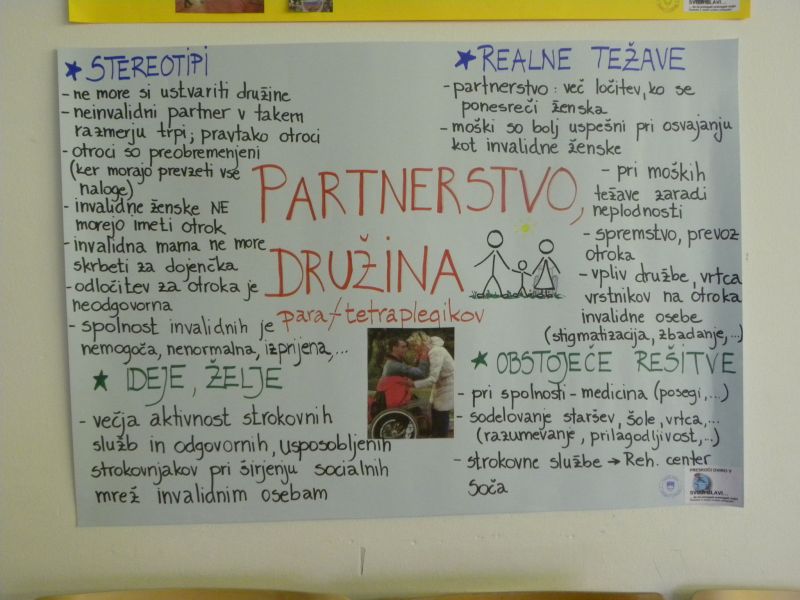 STEREOTIPI
- ne more si ustvariti družine
- neinvalidni partner v takem
razmerju trpi; pravtako otroci
- otroci so preobremenjeni
(ker morajo prevzeti vse
naloge)
- invalidne ženske NE
morejo imeti otrok
- invalidna mama ne more
skrbeti za dojenčka
- odločitev za otroka je
neodgovorna
- spolnost invalidnih je
nemogoča, nenormalna, izprijena,...
REALNE TEŽAVE
- partnerstvo: več ločitev, ko se
ponesreči ženska
- moški so bolj uspešni pri osvajanju
kot invalidne ženske
- pri moških
težave zaradi
neplodnosti
- spremstvo, prevoz
otroka
- vpliv družbe, vrtca
vrstnikov na otroka
invalidne osebe
(stigmatizacija, zbadanje,...)
PARTNERSTVO,
DRUŽINA
para/tetraplegikov
IDEJE, ŽELJE
- večja aktivnost strokovnih
služb in odgovornih, usposobljenih
strokovnjakov pri širjenju socialnih
mrež invalidnim osebam
OBSTOJEČE REŠITVE
- pri spolnosti - medicina (posegi,...)
- sodelovanje staršev, šole, vrtca,...
(razumevanje, prilagodljivost,...)
- strokovne službe → Reh. center
Soča
PRESKOČI OVIRO V